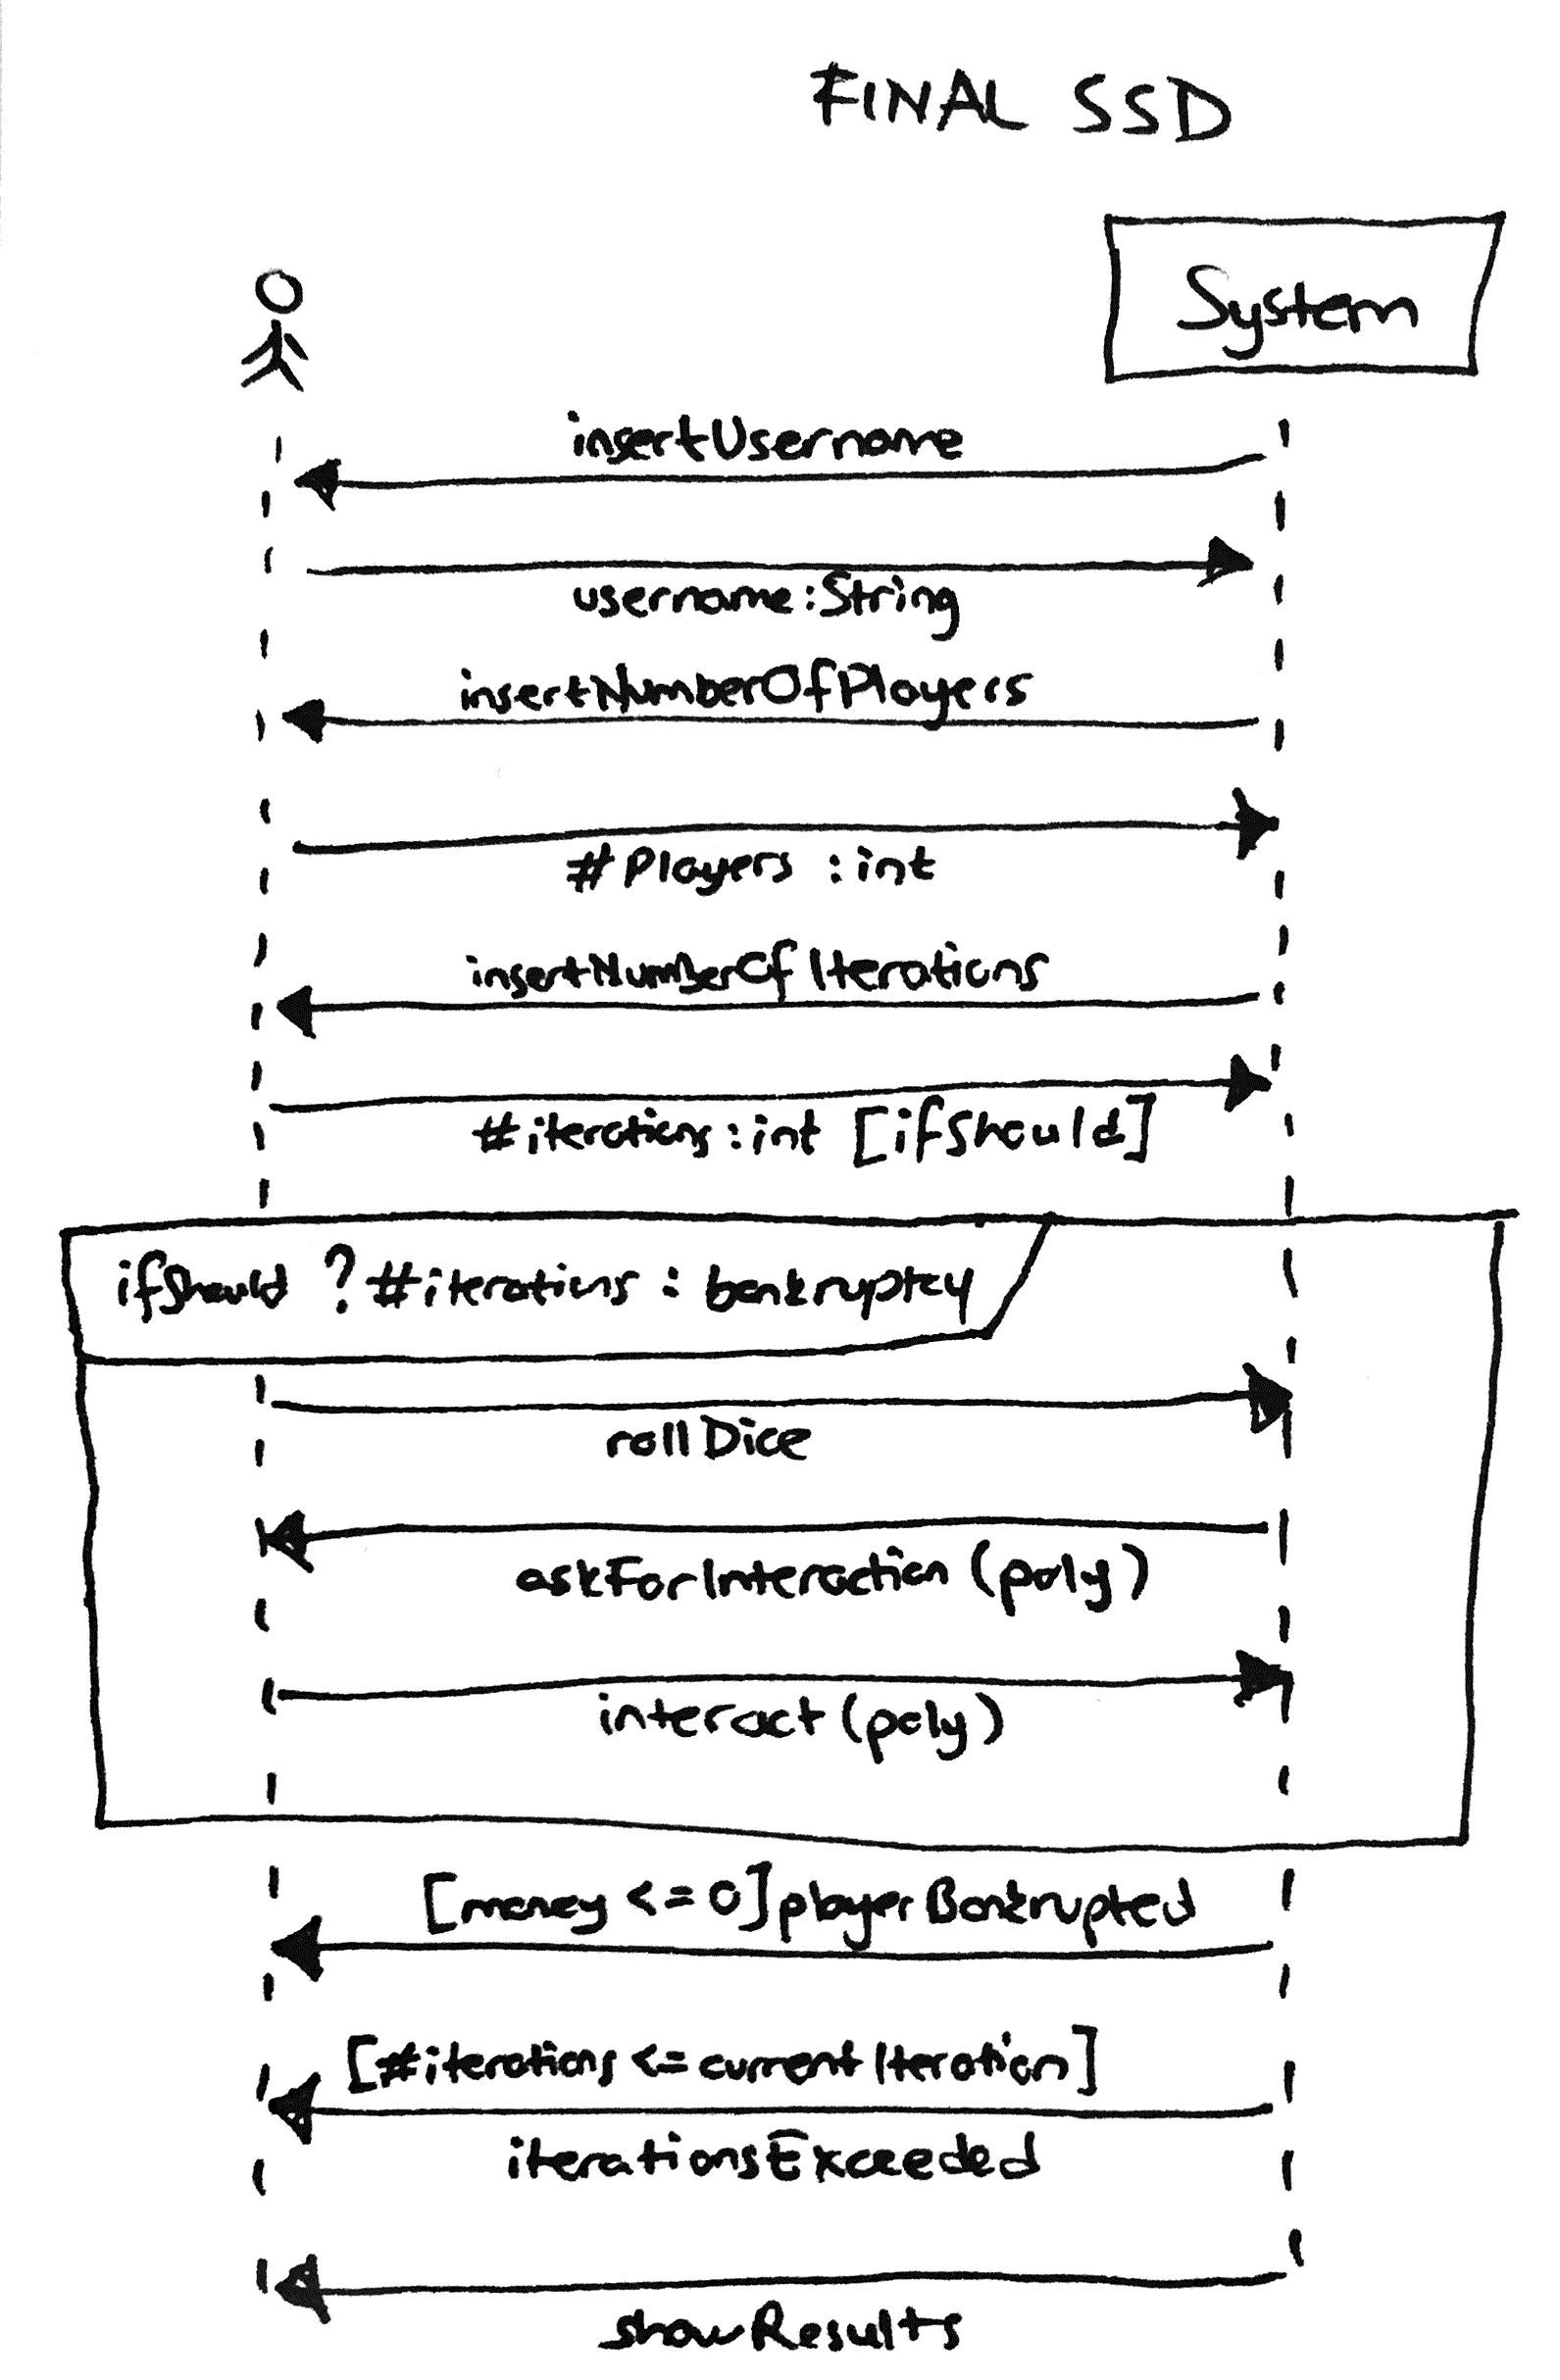 FINAL SSD
System
insertUsername
username:String
insertNumberOfPlayers
#Players :int
insertNumberOfIterations
#iterations:int [ifShould]
ifShould ? #iterations : bankruptcy
rollDice
askForInteraction (poly)
interact (poly)
[money <= 0] playerBankrupted
[#iterations <= currentIteration]
iterationsExceeded
showResults